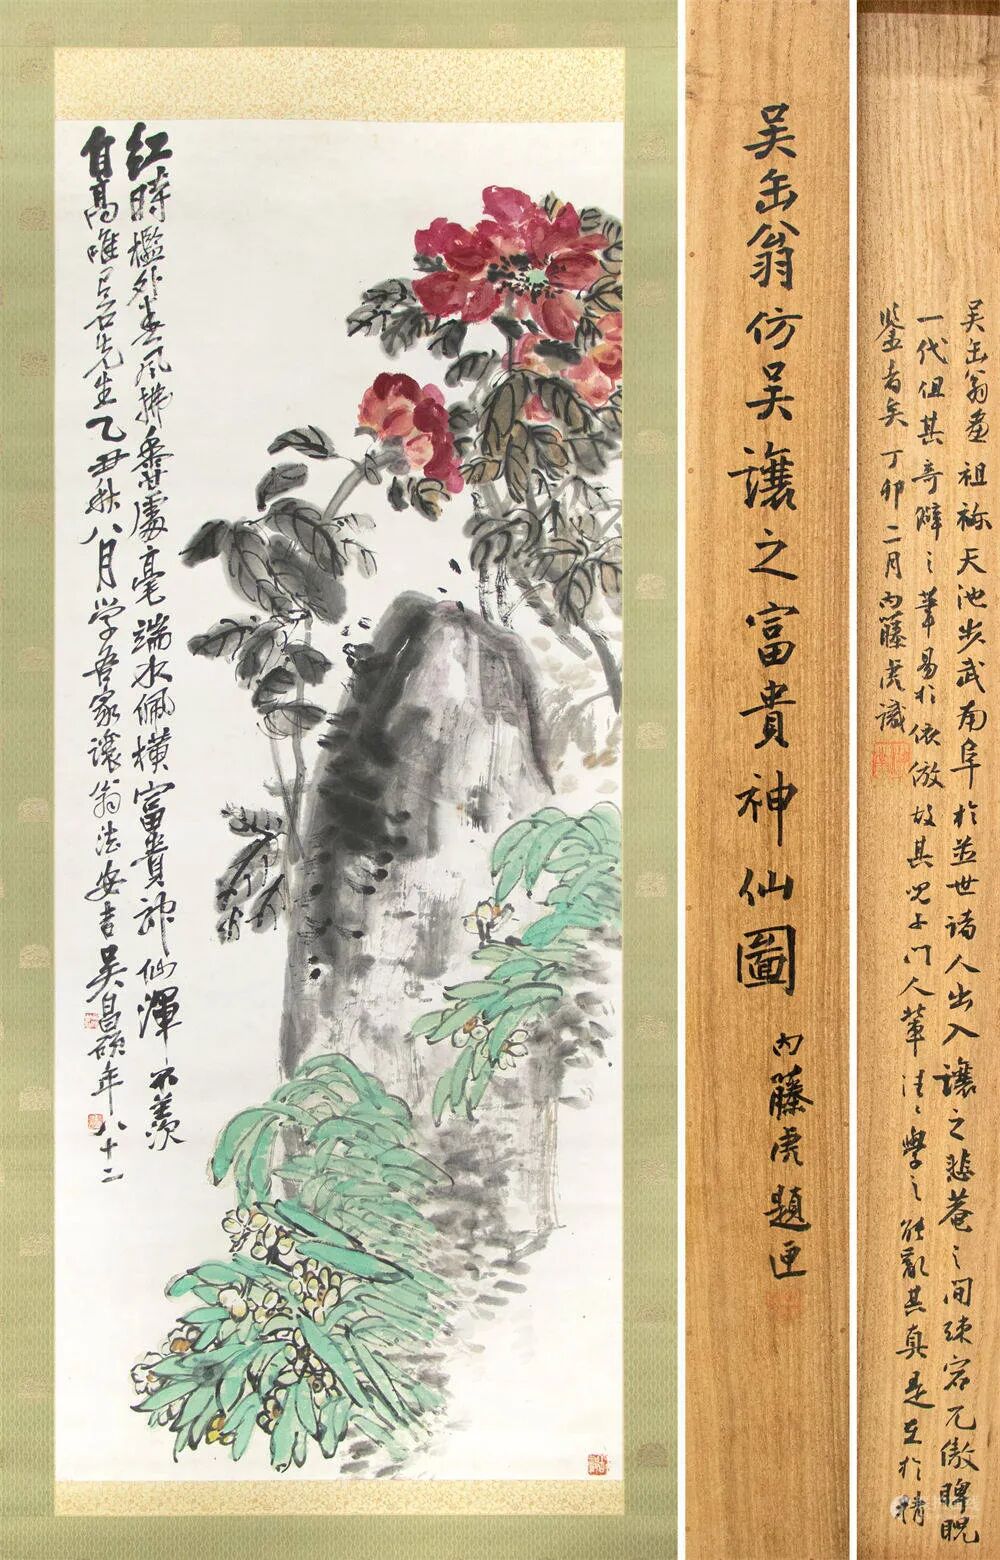 紅時檻外春風拂香處毫端水佩橫富貴神仙渾不羨
自高唯有石先生乙丑秋八月学吾家讓翁法安吉吳昌碩年八十二
吴缶翁仿吴讓之富貴神仙圖
内藤虎題匣
吴缶翁畫祖祢天池步武南阜於並世諸人出入讓之悲菴之間疎宕兀傲睥睨
一代但其奇僻之筆易於依倣故其兒子門人輩往々學之能亂其真是在於精
鑒者矣丁卯二月内藤虎識